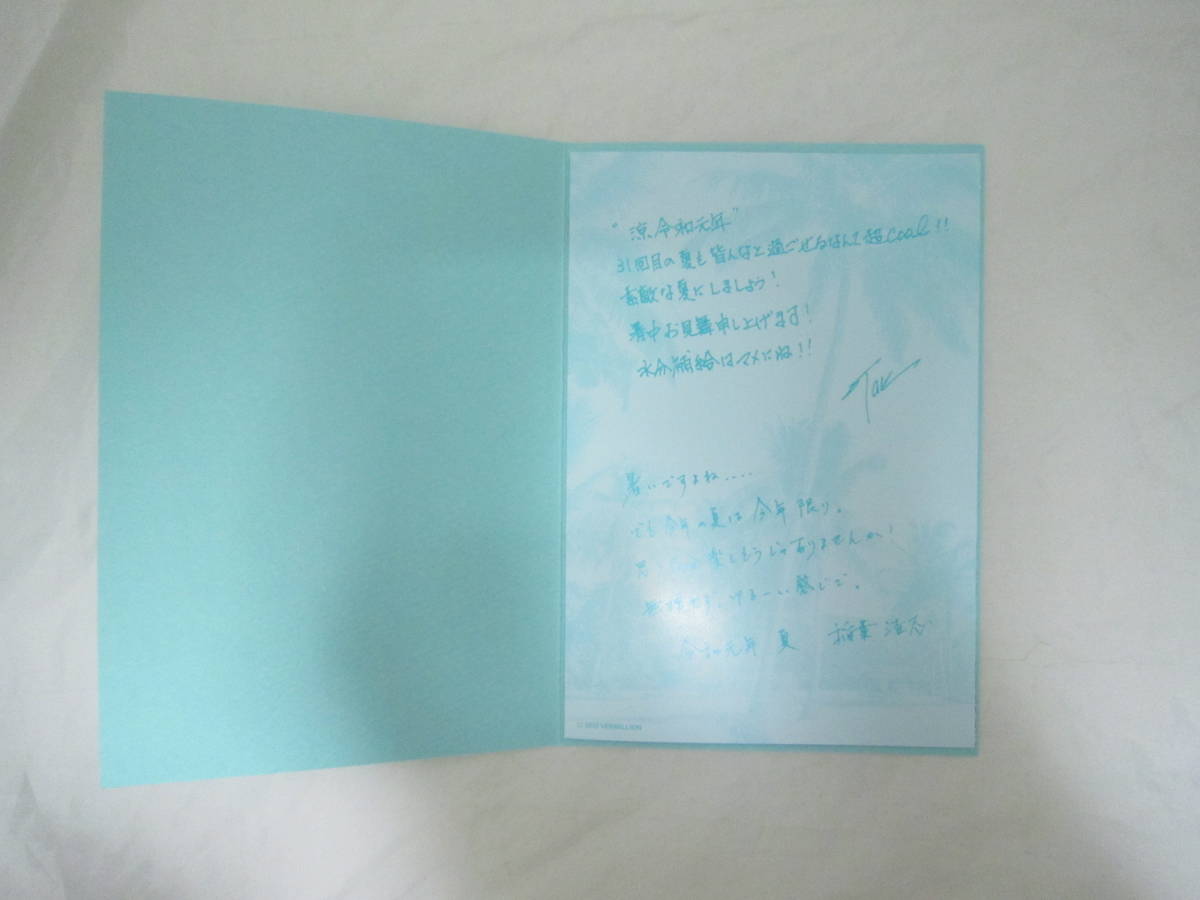 "涼令和元年"
31回目の夏も皆んなと過ごせるなんて超cool!!
素敵な夏にしましょう!
暑中お見舞申し上げます!
水分補給はマメにね!!
Tak
暑いですよね....
でも今年の夏は今年限り。
楽しもうじゃありませんか!
ゆるーい感じで。
令和元年 夏 稲葉浩志
VERMILLION